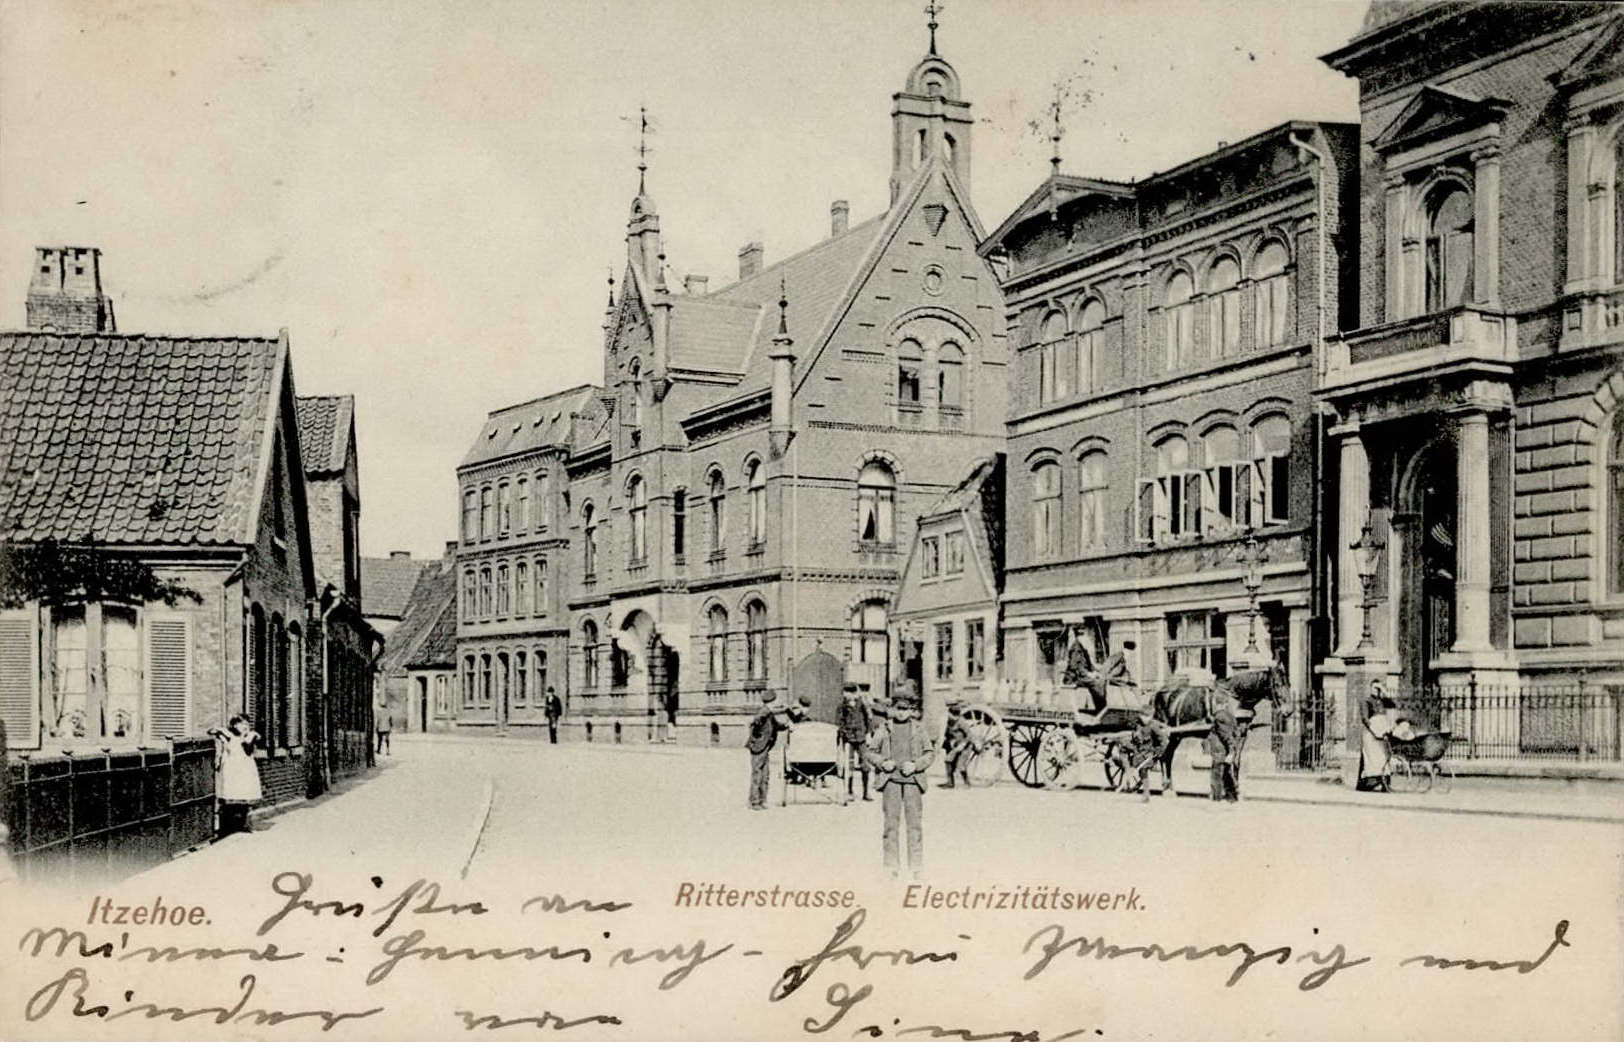 Itzehoe. Grüße an Ritterstrasse. Electrizitätswerk.
Minna: Henning - Frau Zwanzig und
Kinder von Sine.